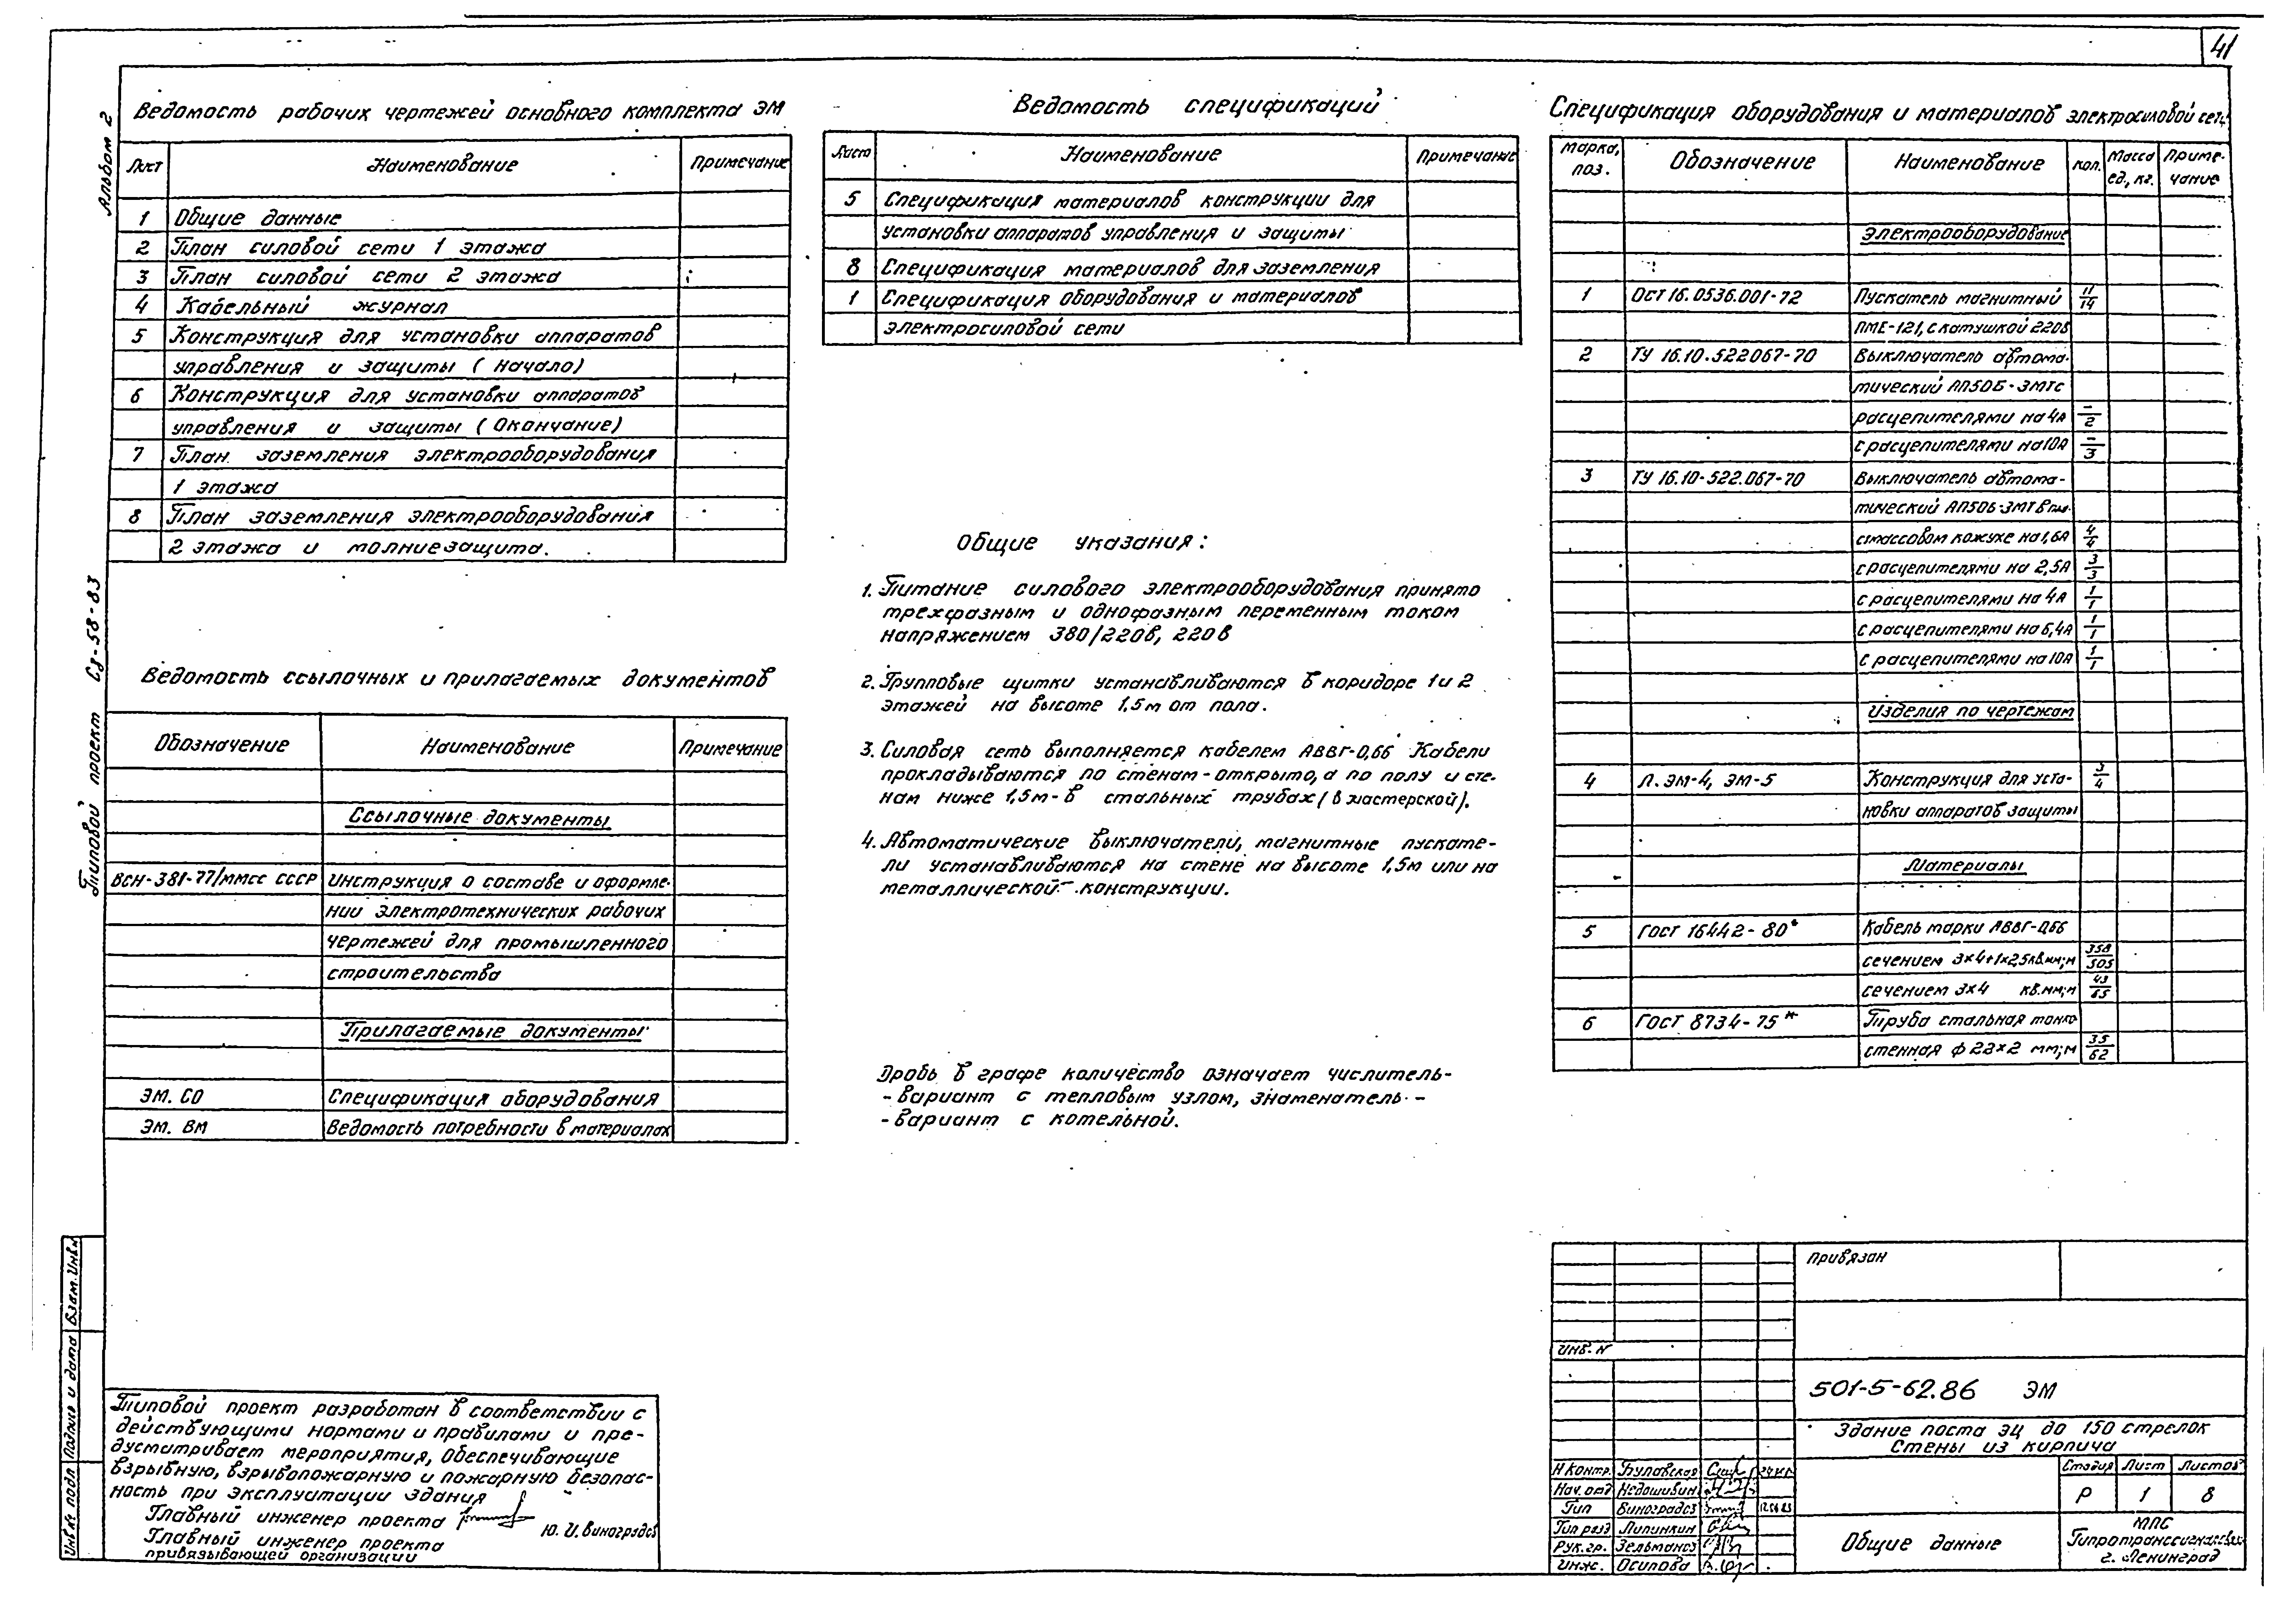 41
Альбом 2
Типовой проект СЭ-58-83
Ведомость рабочих чертежей основного комплекта ЭМ
Лист Наименование Примечание
1 Общие данные
2 План силовой сети 1 этажа
3 План силовой сети 2 этажа
4 Кабельный журнал
5 Конструкция для установки аппаратов
управления и защиты (Начало)
6 Конструкция для установки аппаратов
управления и защиты (Окончание)
7 План заземления электрооборудования
1 этажа
8 План заземления электрооборудования
2 этажа и молниезащита.
Ведомость ссылочных и прилагаемых документов
Обозначение Наименование Примечание
Ссылочные документы
ВСН-381-77/ММСС СССР Инструкция о составе и оформле-
нии электротехнических рабочих
чертежей для промышленного
строительства
Прилагаемые документы
ЭМ. СО Спецификация оборудования
ЭМ. ВМ Ведомость потребности в материалах
Ведомость спецификаций
Лист Наименование Примечание
5 Спецификация материалов конструкции для
установки аппаратов управления и защиты
8 Спецификация материалов для заземления
1 Спецификация оборудования и материалов
электросиловой сети
Общие указания:
1. Питание силового электрооборудования принято
трехфазным и однофазным переменным током
напряжением 380/220в, 220в
2. Групповые щитки устанавливаются в коридоре 1 и 2
этажей на высоте 1,5м от пола.
3. Силовая сеть выполняется кабелем АВВГ-0,66 Кабели
прокладываются по стенам-открыто, а по полу и сте-
нам ниже 1,5м-в стальных трубах (в мастерской).
4. Автоматические выключатели, магнитные пускате-
ли устанавливаются на стене на высоте 1,5м или на
металлической конструкции.
Дробь в графе количество означает числитель-
-вариант с тепловым узлом, знаменатель-
-вариант с котельной.
Спецификация оборудования и материалов электросиловой сети
Марка, поз. Обозначение Наименование Кол. Масса ед., кг. Приме-чание
Электрооборудование
1 ОСТ 16.0536.001-72 Пускатель магнитный 11/14
ПМЕ-121, с катушкой 220в
2 ТУ 16.10.522067-70 Выключатель автома-
тический АП50Б-3МТ с
расцепителями на 4А -/2
с расцепителями на 10А -/3
3 ТУ 16.10-522.067-70 Выключатель автома-
тический АП50Б-3МТ в плас-
стмассовом кожухе на 1,6А 4/4
с расцепителями на 2,5А 3/3
с расцепителями на 4А 1/1
с расцепителями на 6,4А 1/1
с расцепителями на 10А 1/1
Изделия по чертежам
4 Л. ЭМ-4, ЭМ-5 Конструкция для уста- 3/4
новки аппаратов защиты
Материалы
5 ГОСТ 16442-80* Кабель марки АВВГ-0,66
сечением 3×4+1×2,5кв.мм;м 358/505
сечением 3×4 кв.мм;м 43/65
6 ГОСТ 8734-75* Труба стальная тонко
стенная ф 22×2 мм;м 35/62
Инв.№ подл Подпись и дата Взам.Инв.№
Типовой проект разработан в соответствии с
действующими нормами и правилами и пре-
дусматривает мероприятия, обеспечивающие
взрывную, взрывопожарную и пожарную безопас-
ность при эксплуатации здания
Главный инженер проекта Ю.И.Виноградов
Главный инженер проекта
привязывающей организации
Привязан
Инв. №
501-5-62.86 ЭМ
Здание поста ЭЦ до 150 стрелок
Стены из кирпича
Н контр. Булавская
Нач. отд Недошивин
Гип Виноградов
Гип разд Липинкин
Рук. гр. Зельманов
Инж. Осипова
Стадия Лист Листов
Р 1 8
Общие данные
МПС
Гипротранссигналсвязь
г. Ленинград